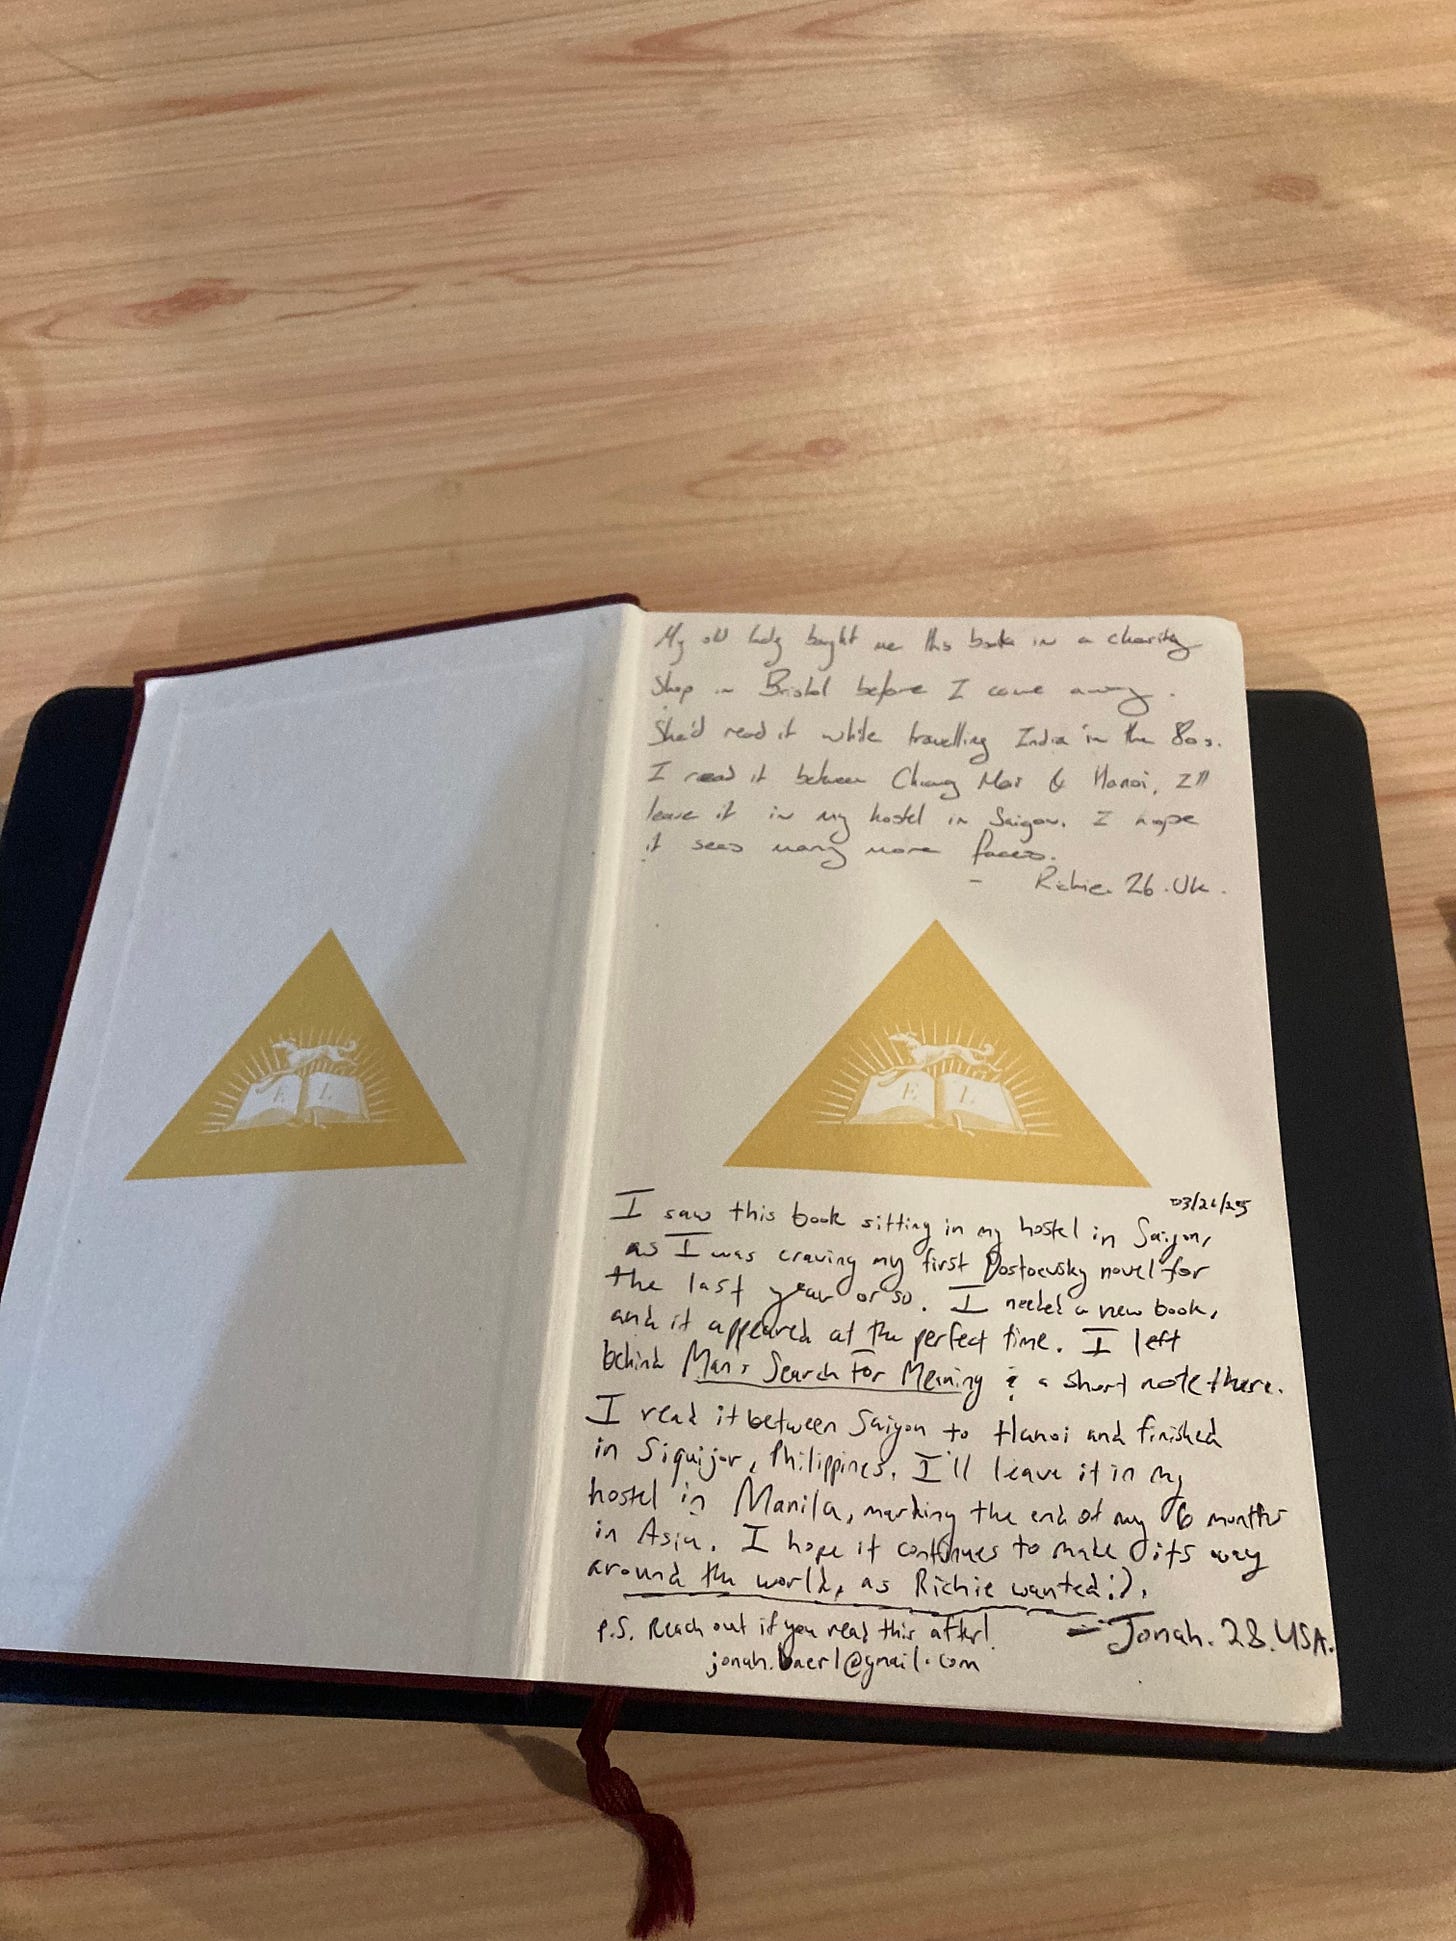 My old lady bought me this book in a charity
shop in Bristol before I came away.
She'd read it while travelling India in the 80s.
I read it between Chiang Mai & Hanoi, I'll
leave it in my hostel in Saigon. I hope
it sees many more faces.
- Richie. 26. UK.
E L
E L
03/26/25
I saw this book sitting in my hostel in Saigon,
as I was craving my first Dostoevsky novel for
the last year or so. I needed a new book,
and it appeared at the perfect time. I left
behind Man's Search For Meaning & a short note there.
I read it between Saigon to Hanoi and finished
in Siquijor, Philippines. I'll leave it in my
hostel in Manila, marking the end of my 6 months
in Asia. I hope it continues to make its way
around the world, as Richie wanted :).
- Jonah. 28. USA.
P.S. Reach out if you read this after!
jonah.baerl@gmail.com